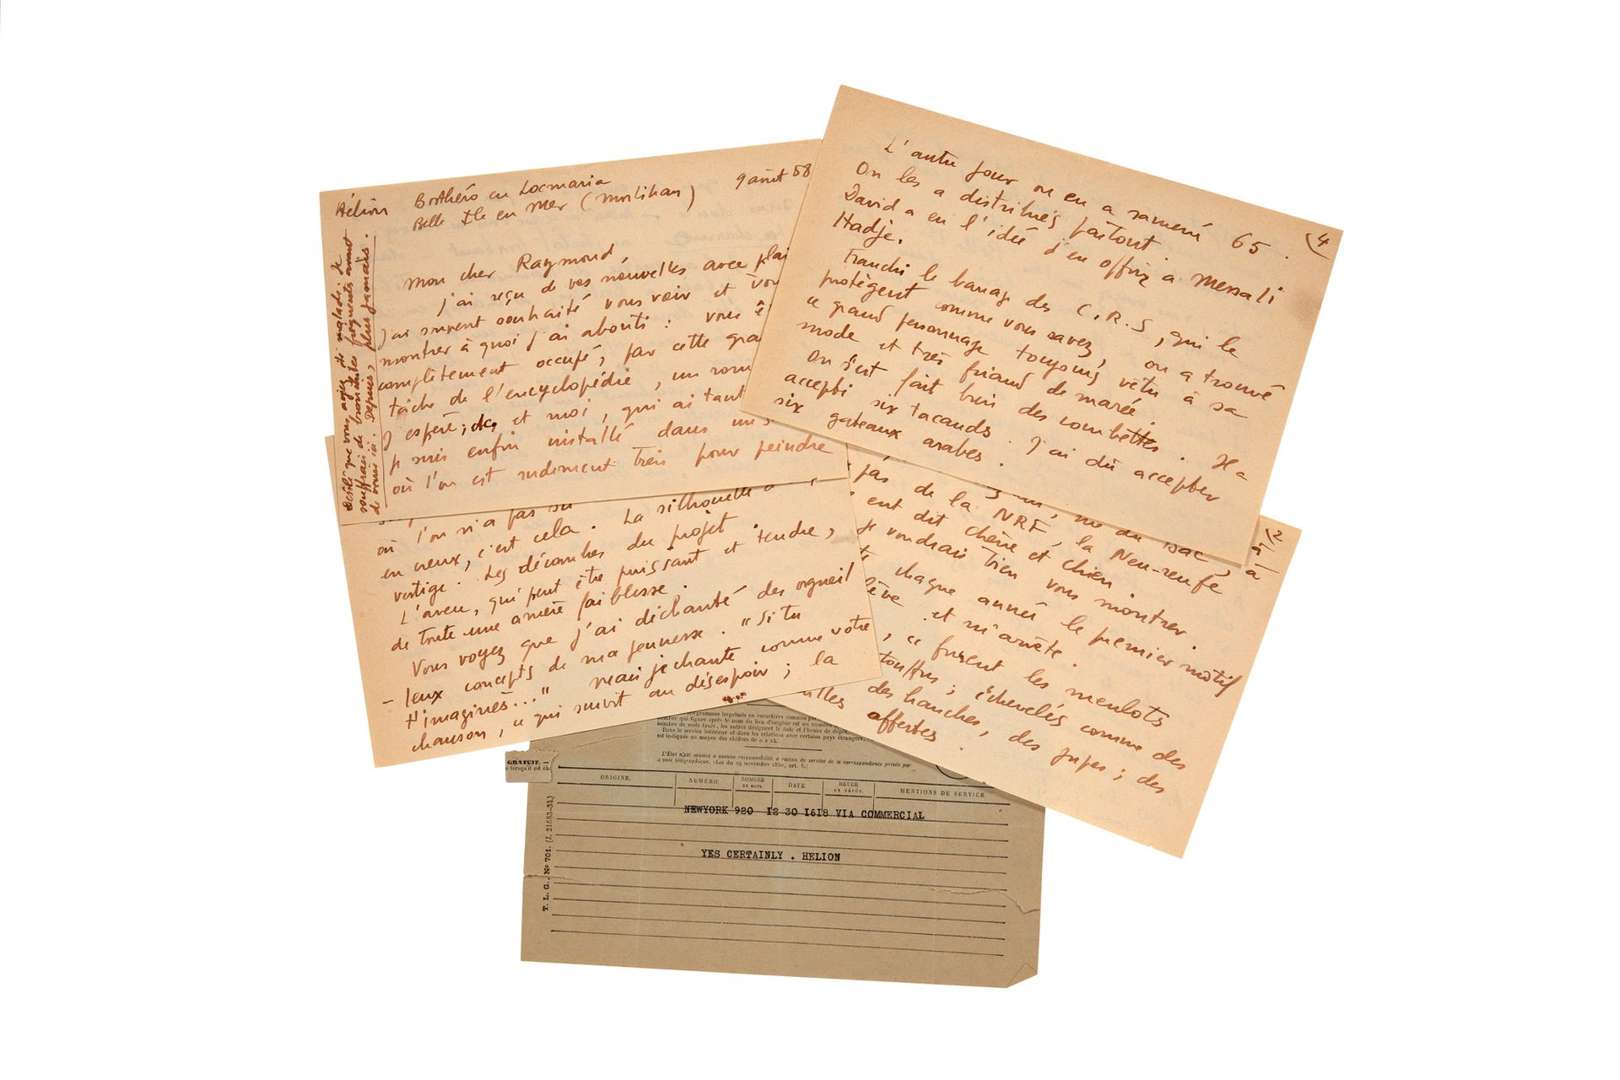 Hélion
Borthéro en Locmaria
9 août 58
Belle Ile en Mer (Morbihan)
Mon cher Raymond,
j'ai reçu de vos nouvelles avec plai
J'ai souvent souhaité vous voir et vou
montrer à quoi j'ai abouti : vous ê
complètement occupé, par cette gra
tâche de l'encyclopédie, un rom
j'espère, et moi, qui ai tant
je suis enfin installé dans
où l'on est rudement bien pour peindre
Désolé que vous ayez été malade. Je
souffrais de bronchites fréquentes avant
de venir ici. Depuis, plus jamais.
4
L'autre jour on en a ramené 65.
On les a distribués partout.
David a eu l'idée j'en offrir à Messali
Hadje.
Franchi le barrage des C.R.S, qui le
protègent comme vous savez, on a trouvé
ce grand personnage toujours vêtu à sa
mode et très friand de marée.
On s'est fait bien des courbettes. Il a
accepté six tacauds. J'ai dû accepter
six gateaux arabes.
où l'on n'a pas su
en creux, c'est cela. La silhouette
vertige. Les décombres du projet.
L'aveu, qui peut être puissant et tendre,
de toute une amère faiblesse.
Vous voyez que j'ai déchanté des orgueil
- leux concepts de ma jeunesse. "Si tu
t'imagines..." mais je chante comme votre
chanson, ce qui suivit au désespoir ; la
2
pas de la NRF, la Neu-reufe
eut dit chène et chien
je voudrais bien vous montrer.
chaque année le premier motif
lève et m'arrête.
, ce furent les meulots
touffus ; échevelés comme des
des hanches, des jupes ; des
offertes.
L'État n'est soumis à aucune responsabilité à raison du service de la correspondance privée par
la voie télégraphique. (Loi du 29 novembre 1850, art. 6.)
GRATUIT. -
ORIGINE.
NUMÉRO.
NOMBRE
DE MOTS.
DATE
HEURE
DE DÉPÔT.
MENTIONS DE SERVICE.
NEWYORK 920 12 30 1618 VIA COMMERCIAL
YES CERTAINLY . HELION
T. L. G. N° 701.